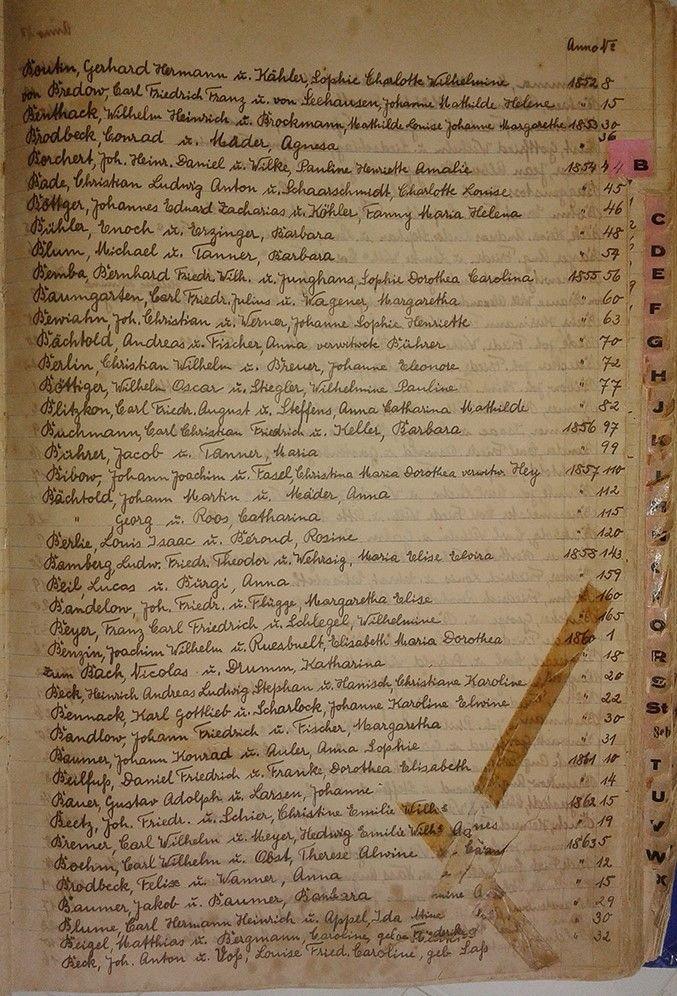 Anno No
Boutin, Gerhard Hermann u. Kähler, Sophie Charlotte Wilhelmine 1852 8
von Bredow, Carl Friedrich Franz u. von Seehausen, Johanne Mathilde Helene " 15
Benthack, Wilhelm Heinrich u. Brockmann, Mathilde Louise Johanne Margarethe 1853 30
Brodbeck, Conrad u. Mäder, Agnesa " 36
Borchert, Joh. Heinr. Daniel u. Wilke, Pauline Henriette Amalie 1854 44
B
Bade, Christian Ludwig Anton u. Schaarschmidt, Charlotte Louise " 45
Böttger, Johannes Eduard Zacharias u. Köhler, Fanny Maria Helena " 46
Bühler, Enoch u. Erzinger, Barbara " 48
Blum, Michael u. Tanner, Barbara " 54
Bemba, Bernhard Friedr. Wilh. u. Junghans, Sophie Dorothea Carolina 1855 56
Baumgarten, Carl Friedr. Julius u. Wagener, Margaretha " 60
Bewiahn, Joh. Christian u. Werner, Johanne Sophie Henriette " 63
Bächtold, Andreas u. Fischer, Anna verwitwete Bührer " 70
Berlin, Christian Wilhelm u. Breuer, Johanne Eleonore " 72
Böttiger, Wilhelm Oscar u. Stiegler, Wilhelmine Pauline " 77
Blitzkon, Carl Friedr. August u. Steffens, Anna Catharina Mathilde " 82
Buchmann, Carl Christian Friedrich u. Keller, Barbara 1856 97
Bührer, Jacob u. Tanner, Maria " 99
Bibow, Johann Joachim u. Fasel, Christina Maria Dorothea verwitw. Hey 1857 110
Bächtold, Johann Martin u. Mäder, Anna " 112
" Georg u. Roos, Catharina " 115
Berlie, Louis Isaac u. Béroud, Rosine " 120
Bamberg, Ludw. Friedr. Theodor u. Wehrsig, Maria Elise Elvira 1858 143
Beil, Lucas u. Bürgi, Anna " 159
Bandelow, Joh. Friedr. u. Flügge, Margaretha Elise " 160
Beyer, Franz Carl Friedrich u. Schlegel, Wilhelmine " 165
Benzin, Joachim Wilhelm u. Elisabeth Maria Dorothea 1860 1
zum Bach, Nicolas u. Drumm, Katharina " 18
Beck, Heinrich Andreas Ludwig Stephan u. Hanisch, Christiane Karoline " 20
Bennack, Karl Gottlieb u. Scharlock, Johanne Karoline Elwine " 22
Bandlow, Johann Friedrich u. Fischer, Margaretha " 30
Baumer, Johann Konrad u. Auler, Anna Sophie " 31
Beilfuß, Daniel Friedrich u. Franke, Dorothea Elisabeth 1861 10
Bauer, Gustav Adolph u. Larsen, Johanne " 14
Beetz, Joh. Friedr. u. Schier, Christine Emilie Wilh. 1862 15
Bremer, Carl Wilhelm u. Meyer, Hedwig Emilie Wilh. Agnes " 19
Boehm, Carl Wilhelm u. Obst, Therese Alwine 1863 5
Brodbeck, Felix u. Wanner, Anna " 12
Baumer, Jakob u. Baumer, Barbara " 15
Blume, Carl Hermann Heinrich u. Appel, Ida " 29
Beigel, Matthias u. Bergmann, Caroline, " 30
Beck, Joh. Anton u. Voß, Louise Fried. Caroline, geb. Saß " 32
C
D
E
F
G
H
J
O
R
S
St
Sch
T
U
V
W
X